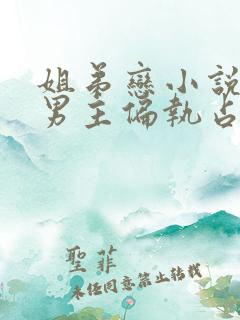 姐弟戀小說
男主偏執占
聖菲
未經同意禁止轉載